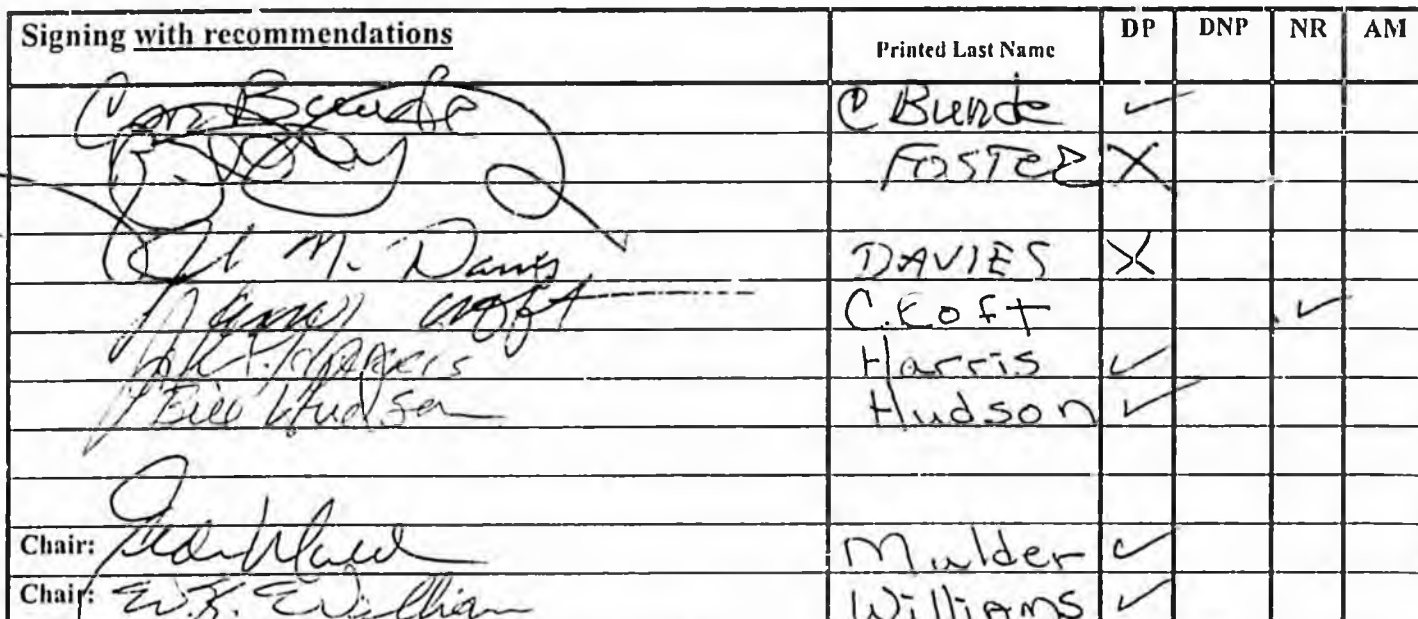 Signing with recommendations Printed Last Name DP DNP NR AM
Con Bunde C Bunde ✓
FOSTER X
M. Davies DAVIES X
Croft C.Roft ✓
Harris ✓
Bill Hudson Hudson ✓
Chair: Mulder ✓
Chair: Williams ✓